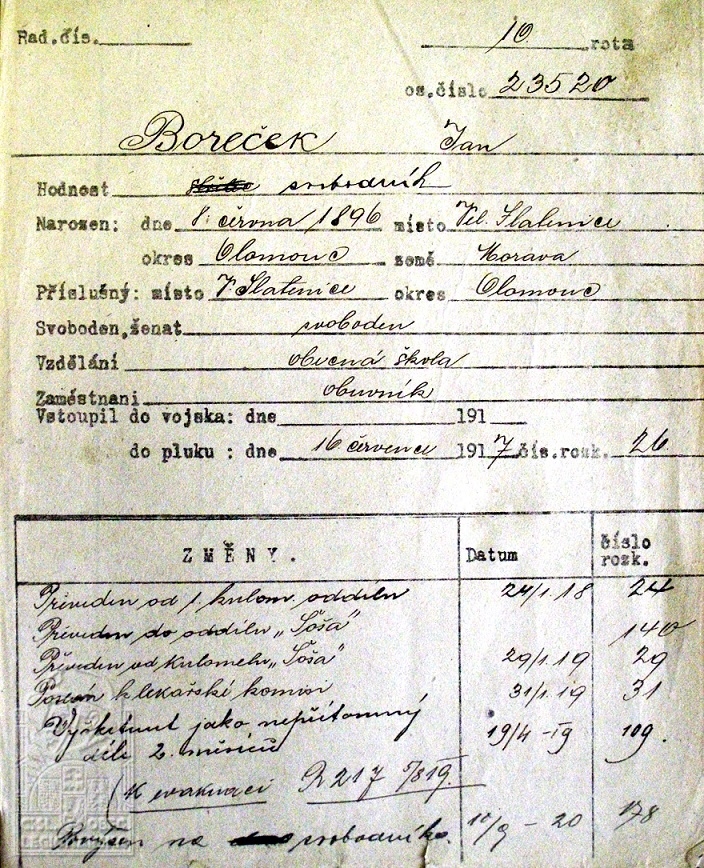 Řad.čís. 10 rota
os.číslo 23520
Boreček Jan
Hodnost svobodník
Narozen: dne 8. června 1896 místo Vel. Slatenice
okres Olomouc země Morava
Příslušný: místo V. Slatenice okres Olomouc
Svoboden,ženat svoboden
Vzdělání obecná škola
Zaměstnani obuvník
Vstoupil do vojska: dne 191
do pluku : dne 16 července 1917 čís.rozk. 26
ZMĚNY. Datum číslo rozk.
Převeden od 1. kulom. oddílu 24/1.18 24
Převeden do oddílu „Šoša" 140
Převeden od kulometu „Šoša" 29/1.19 29
Poslán k lekařské komisi 31/1.19 31
Vyškrtnut jako nepřítomný 19/4 -19 109.
déle 2. měsíců
K evakuaci R 217
Povýšen na svobodníka. 10/9 - 20 178